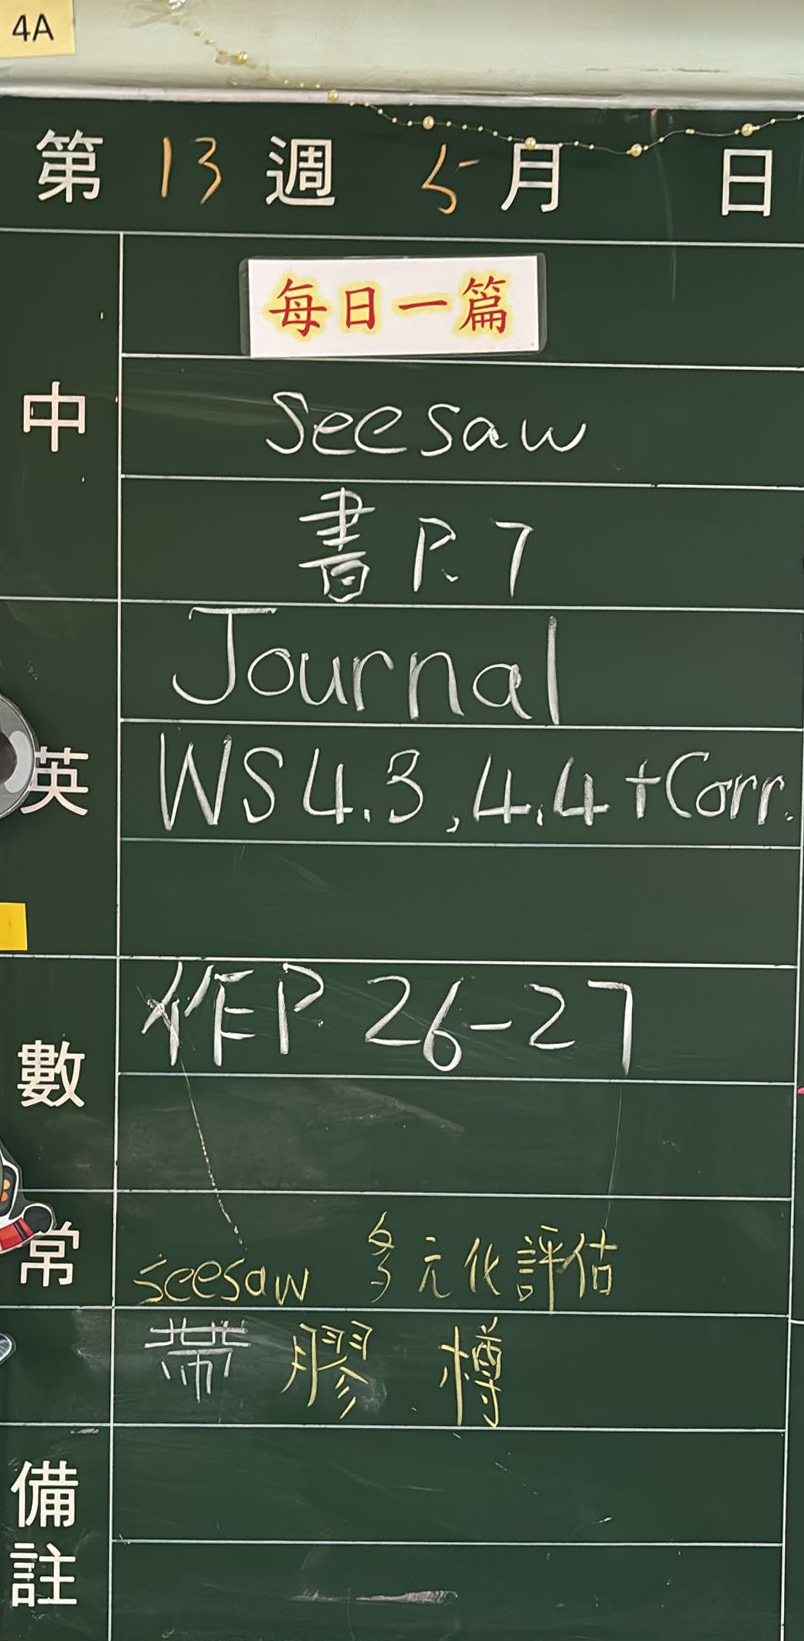 4A
第 13 週 5 月 日
每日一篇
中
seesaw
書 P.7
Journal
英
WS 4.3, 4.4 + Corr.
數
作 P. 26-27
常
seesaw 多元化評估
帶 膠 樽
備註